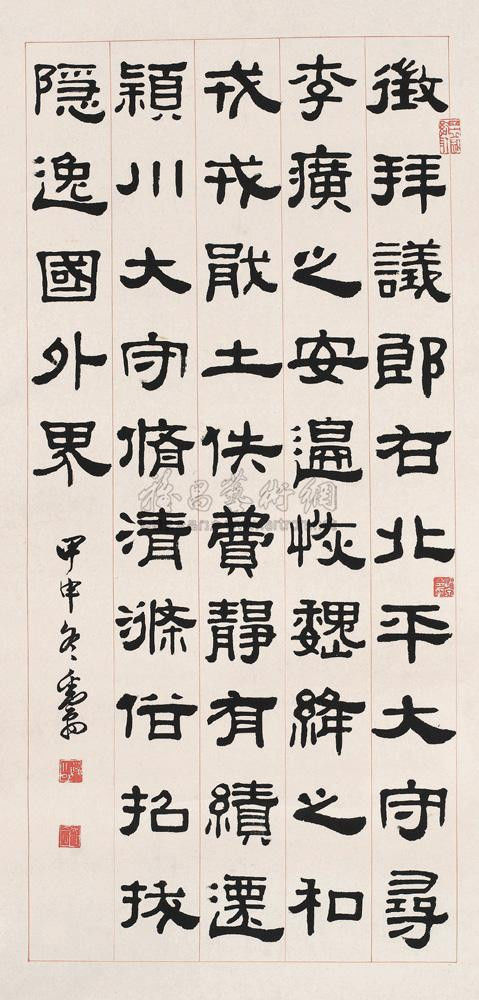 徵拜議郎右北平大守尋
李廣之安邊恢魏絳之和
戎戎戢土佚費靜有績遷
潁川大守脩清滌俗招拔
隱逸國外界
甲申冬
雅昌藝術網